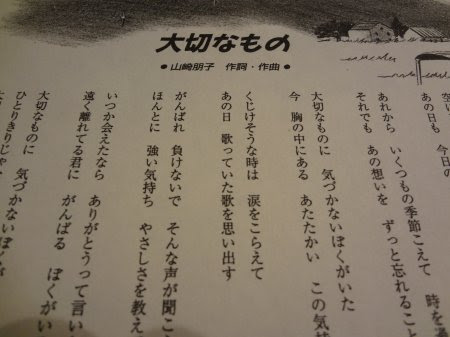 大切なもの
●山崎朋子 作詞・作曲●
空に
あの日も 今日の
あれから いくつもの季節こえて 時を過
それでも あの想いを ずっと忘れること
大切なものに 気づかないぼくがいた
今 胸の中にある あたたかい この気持
くじけそうな時は 涙をこらえて
あの日 歌っていた歌を思い出す
がんばれ 負けないで そんな声が聞こ
ほんとに 強い気持ち やさしさを教え
いつか会えたなら ありがとうって言い
遠く離れてる君に がんばる ぼくがい
大切なものに 気づかないぼくが
ひとりきりじゃな